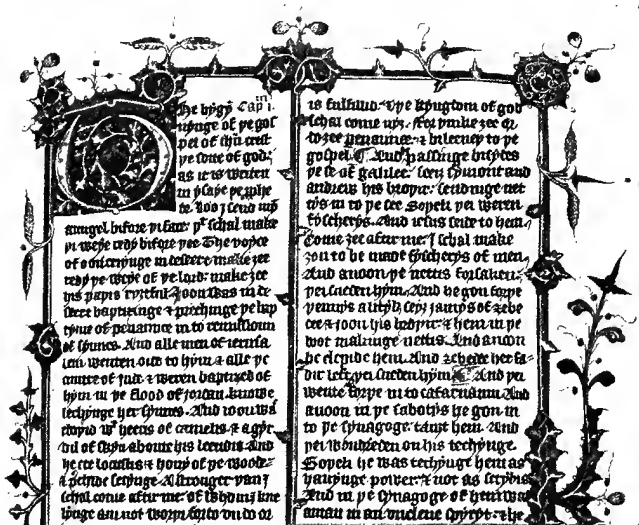 The bygynnynge Cap i.m
nynge of þe gos
pel of ihū crist
þe sone of god:
as it is writen
in ysaye þe ꝓphe
te. Loo I send myn
aungel bifore þi face: þt schal make
þi weye redy bifore þee The voyce
of oon cryinge in desert: make ȝee
redy þe weye of þe lord: make ȝee
his paþis ryȝtful Joon was in de
sert baptisinge & prechinge þe bap
tyme of penaunce in to remissioun
of synnes. And alle men of ierusa
lem wenten out to hym & alle þe
cuntre of Jude & weren baptised of
hym in þe flood of jordan knowle
chynge her synnes. And joon was
cloþid wt heeris of camelis & a gyr
dil of skyn aboute his leendis And
he eet locustis & hony of þe wode
& prchide seiynge A stronger þan I
schal come after me: of whom I kne
lynge am not worþi forto undo or
is fulfild. & þe kyngdom of god
schal come nyȝ. For þinke ȝee or
do ȝee penaunce & bileeue to þe
gospel. And passinge bisydes
þe se of galilee: seeȝ symont and
andrew his broþir: sendinge net
tys in to þe see Soþeli þei weren
fyscherys. And iesus seide to hem:
Come ȝee after me: I schal make
ȝou to be made fyscherys of men
And anoon þe nettis forsaken:
þei sueden hym. And he gon forþe
þennys a lityl: seyȝ iamys of ȝebe
dee & joon his broþir: & hem in þe
boot makinge nettis. And anoon
he clepide hem. And ȝebedee her fa
dir left: þei sueden hym. And þei
wente forþe in to cafarnaum And
anoon in þe sabotis he gon in
to þe synagoge: tauȝt hem. And
þei wondreden on his techynge.
Soþeli he was techynge hem as
hauynge power: & not as scribis
And in þe synagoge of hem was
a man in an unclene spyryt: & he